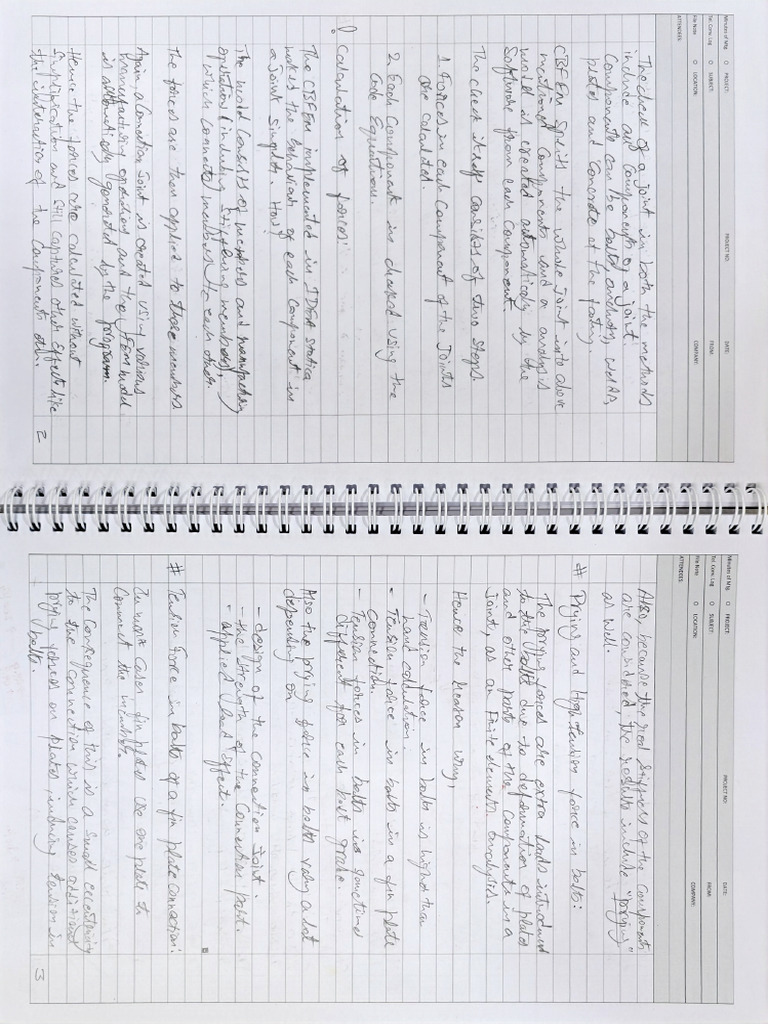 Minutes of Mtg O PROJECT: PROJECT NO: DATE:
Tel. Conv. Log O SUBJECT: FROM:
File Note O LOCATION: COMPANY:
ATTENDEES:
The check of a joint in both the methods
include all components of a joint.
Components can be bolts, anchors, welds,
plates and concrete at the footing.
CBFEM splits the whole joint into above
mentioned components and a analysis
model is created automatically by the
software from each component.
The check itself consists of two steps
1. Forces in each component of the joints
are calculated.
2. Each component is checked using the
code equations.
Calculation of forces:
The CBFEM implemented in IDEA statica
the behaviour of each component in
a joint singular. How?
The model consists of members and manufacturing
operations (including stiffening members)
which connects members to each other.
The forces are then applied to those members
Again, a connection joint is created using various
manufacturing operations and the FEM model
is automatically generated by the program.
Hence the forces are calculated without
simplification and still captures other effects like
the interaction of the components etc.
2
Minutes of Mtg O PROJECT: PROJECT NO: DATE:
Tel. Conv. Log O SUBJECT: FROM:
File Note O LOCATION: COMPANY:
ATTENDEES:
Also, because the real stiffness of the components
are considered, the results include "prying"
as well.
# Prying and High tension force in bolts:
The prying forces are extra loads introduced
to the bolts due to deformation of plates
and other parts of the components in a
joint, as on Finite element analysis.
Hence the reason why,
- Tension force in bolts is higher than
hand calculation.
- Tensile force in bolts in a fin plate
connection.
- Tension forces in bolts is sometime
different for each bolt grade.
Also the prying force in bolts vary a lot
depending on
- design of the connection joint.
- the strength of the connection point.
- applied load effect.
# Tension force in bolts of a fin plate connection:
In most cases fin plates use one plate to
connect the members.
The consequence of this is a small eccentricity
to the connection which causes additional
prying forces on plates, inducing tension in
bolts.
3